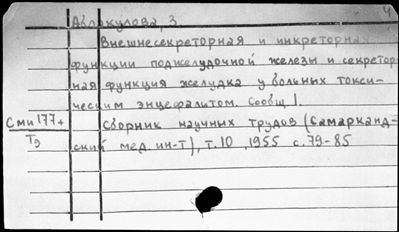 Авлакулова, З
Внешнесекреторная и инкреторная
функции поджелудочной железы и секретор-
ная функция желудка у больных токси-
ческим энцефалитом. Сообщ. 1.
Сми 177+
Т9
Сборник научных трудов (Самарканд-
ский мед. ин-т), т. 10, 1955 с. 79-85